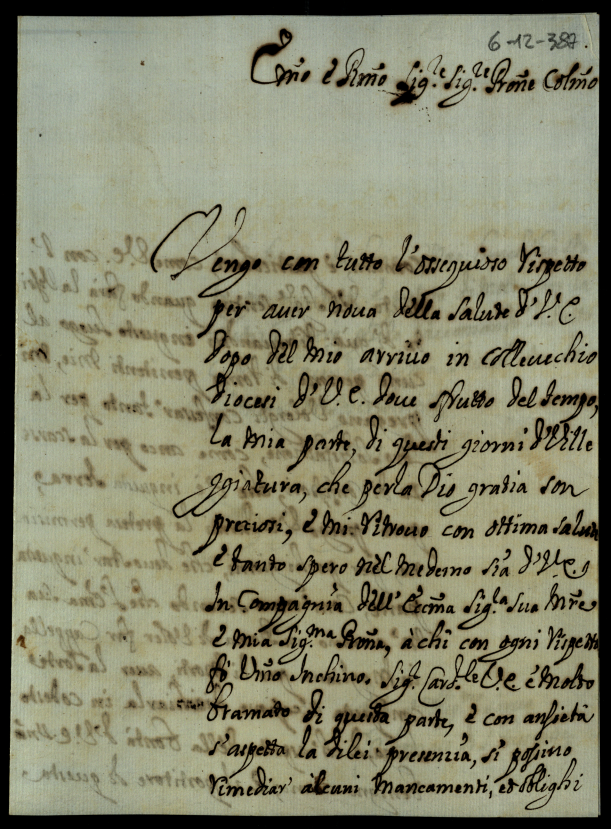 6-12-387.
Emo è Rmo Sigre Sigre Prone Colmo
Vengo con tutto l'ossequioso rispetto
per aver nova della salute d'V.E.
dopo del mio arrivo in Collevechio
Diocesi d'V.E. dove sfrutto del tempo,
la mia parte, di questi giorni d'Ville
ggiatura, che per la Dio gratia son
preciosi, è mi ritrovo con ottima salute
è tanto spero nel medemo sia d'V.E.,
In Compagnia dell'Eccma Sigla sua Mre
è mia Sigma Prona, à chi con ogni rispetto
fò Umo Inchino. Sigr Cardle V.E. è molto
bramato di questa parte, è con ansietà
s'aspetta la di lei presenzia, si possino
rimediar' alcuni mancamenti, et oblighi